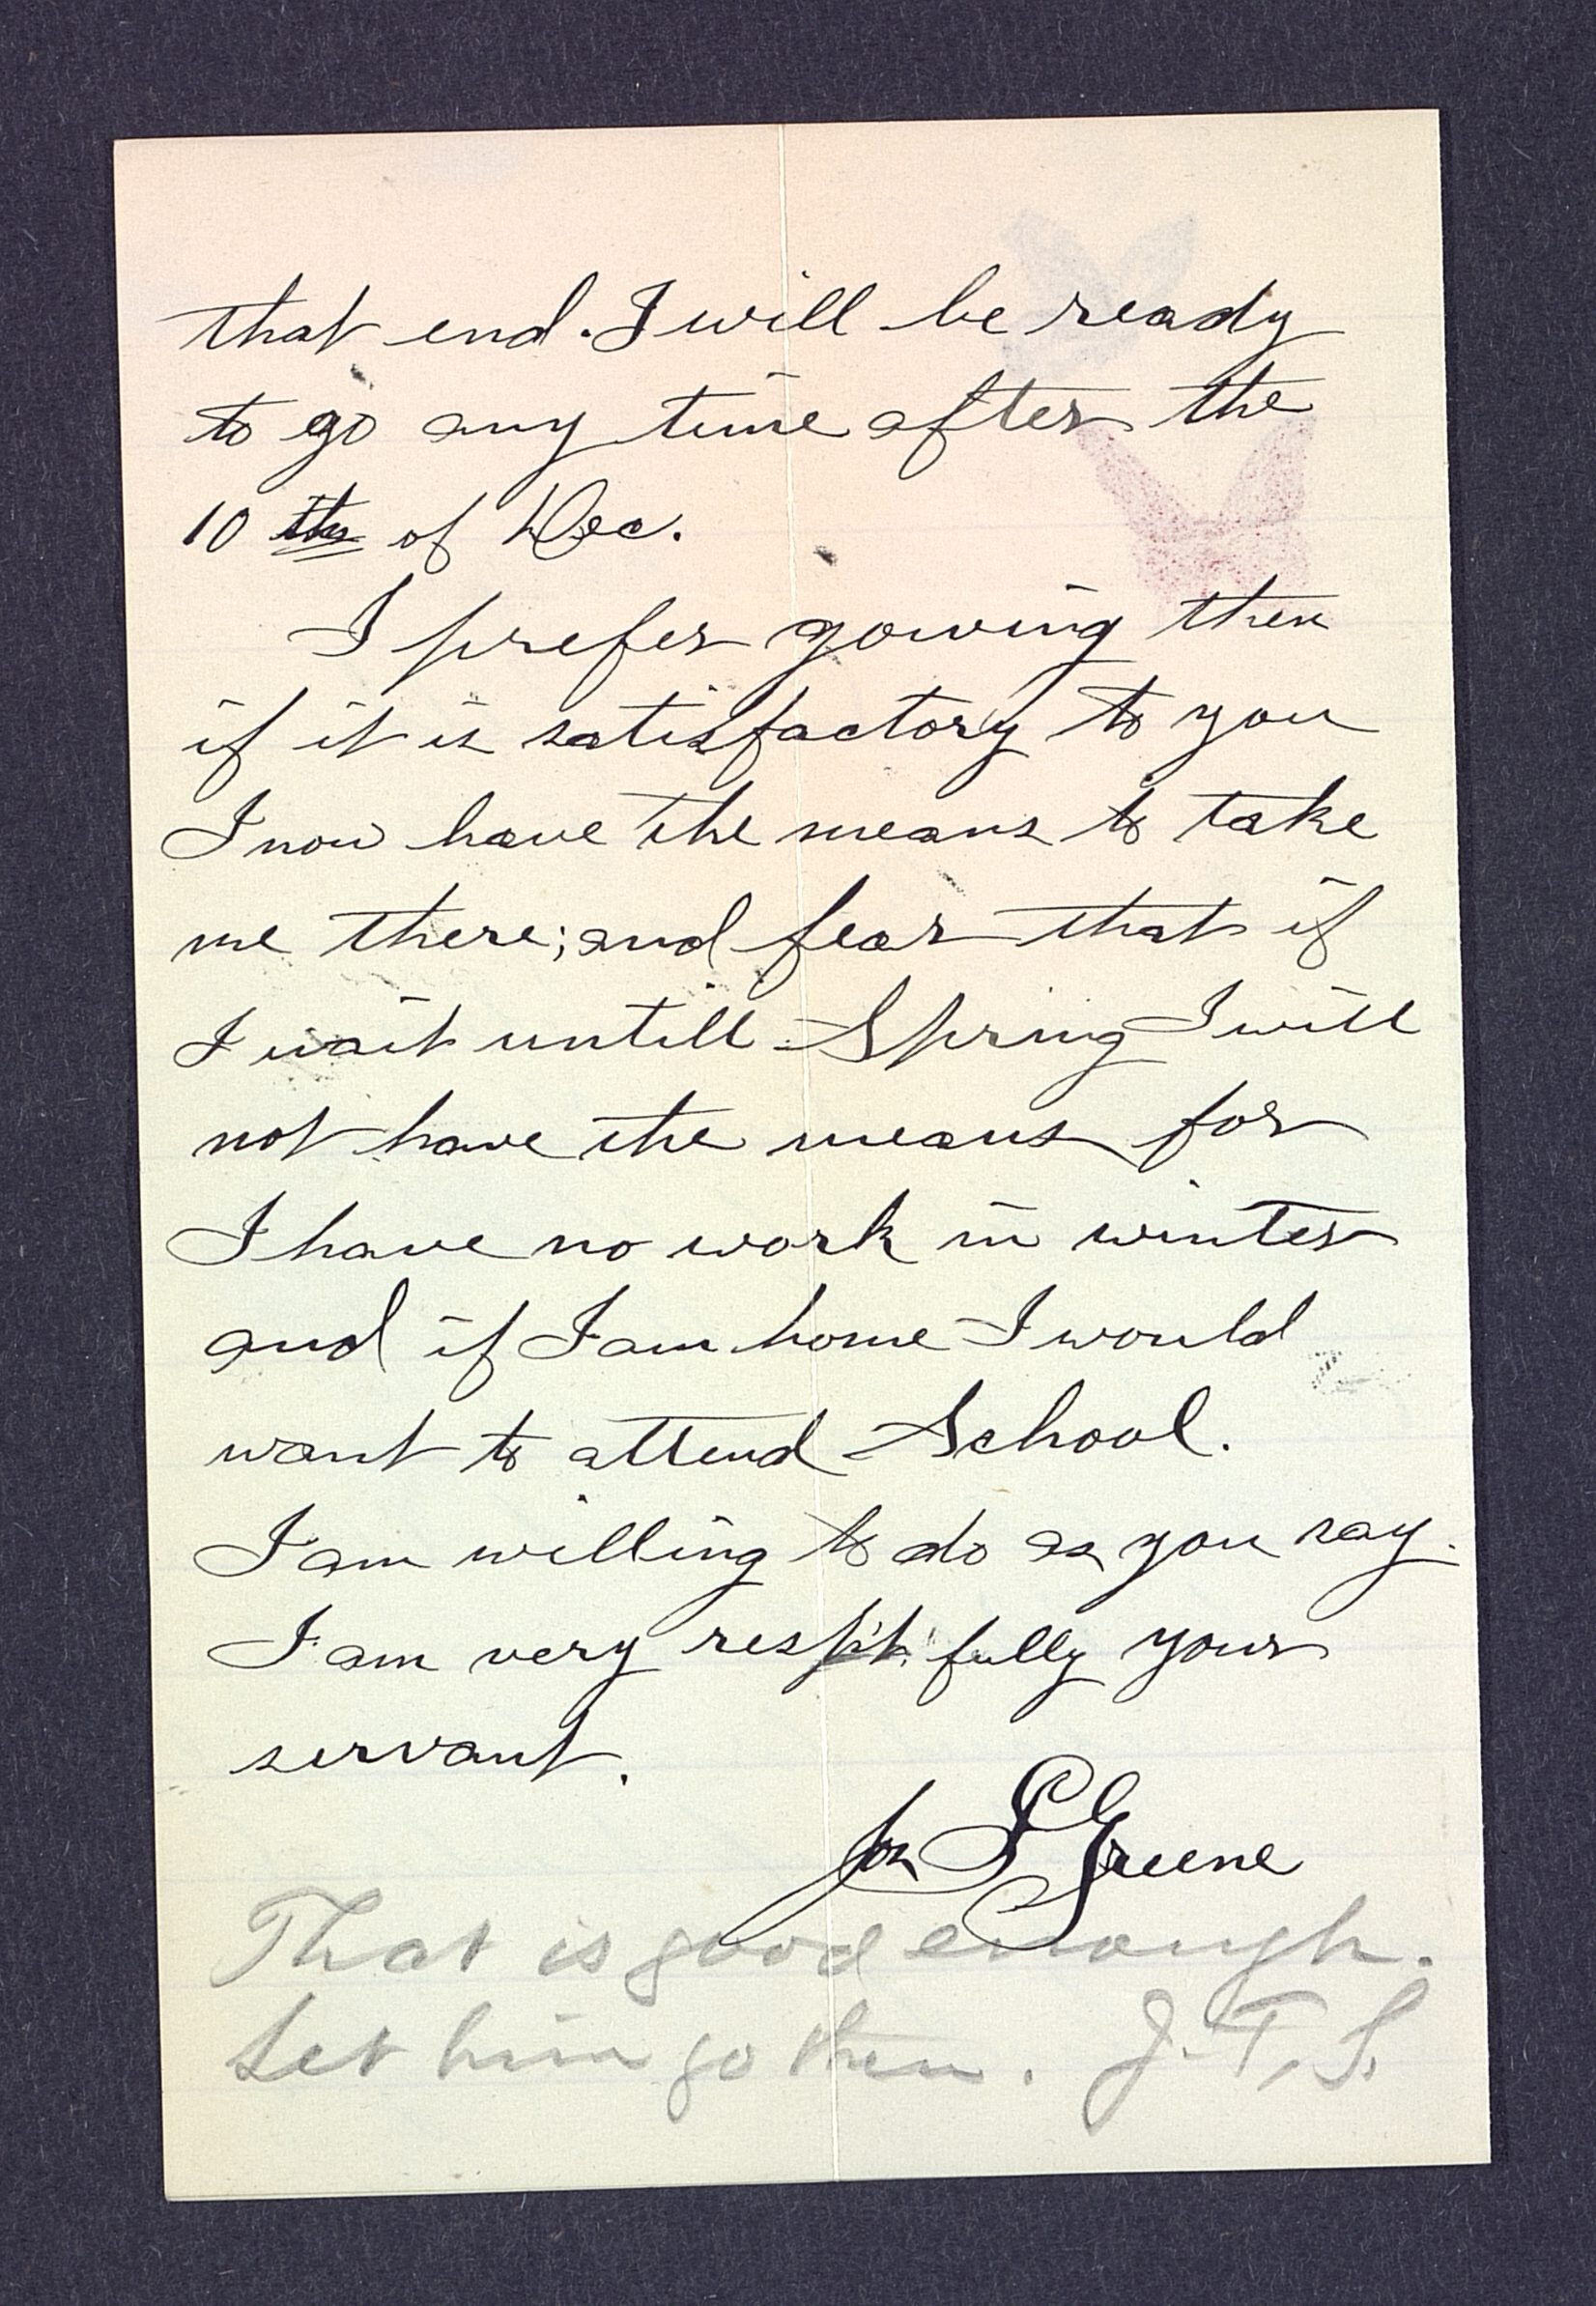 that end. I will be ready
to go any time after the
10th of Dec.
I prefer gowing then
if it is satisfactory to you
I now have the means to take
me there; and fear that if
I wait untill Spring I will
not have the means for
I have no work in winter
and if I am home I would
want to attend School.
I am willing to do as you say.
I am very resp't'fully your
servant.
Jos S Greene
That is good enough.
Let him go then. J. T, S.